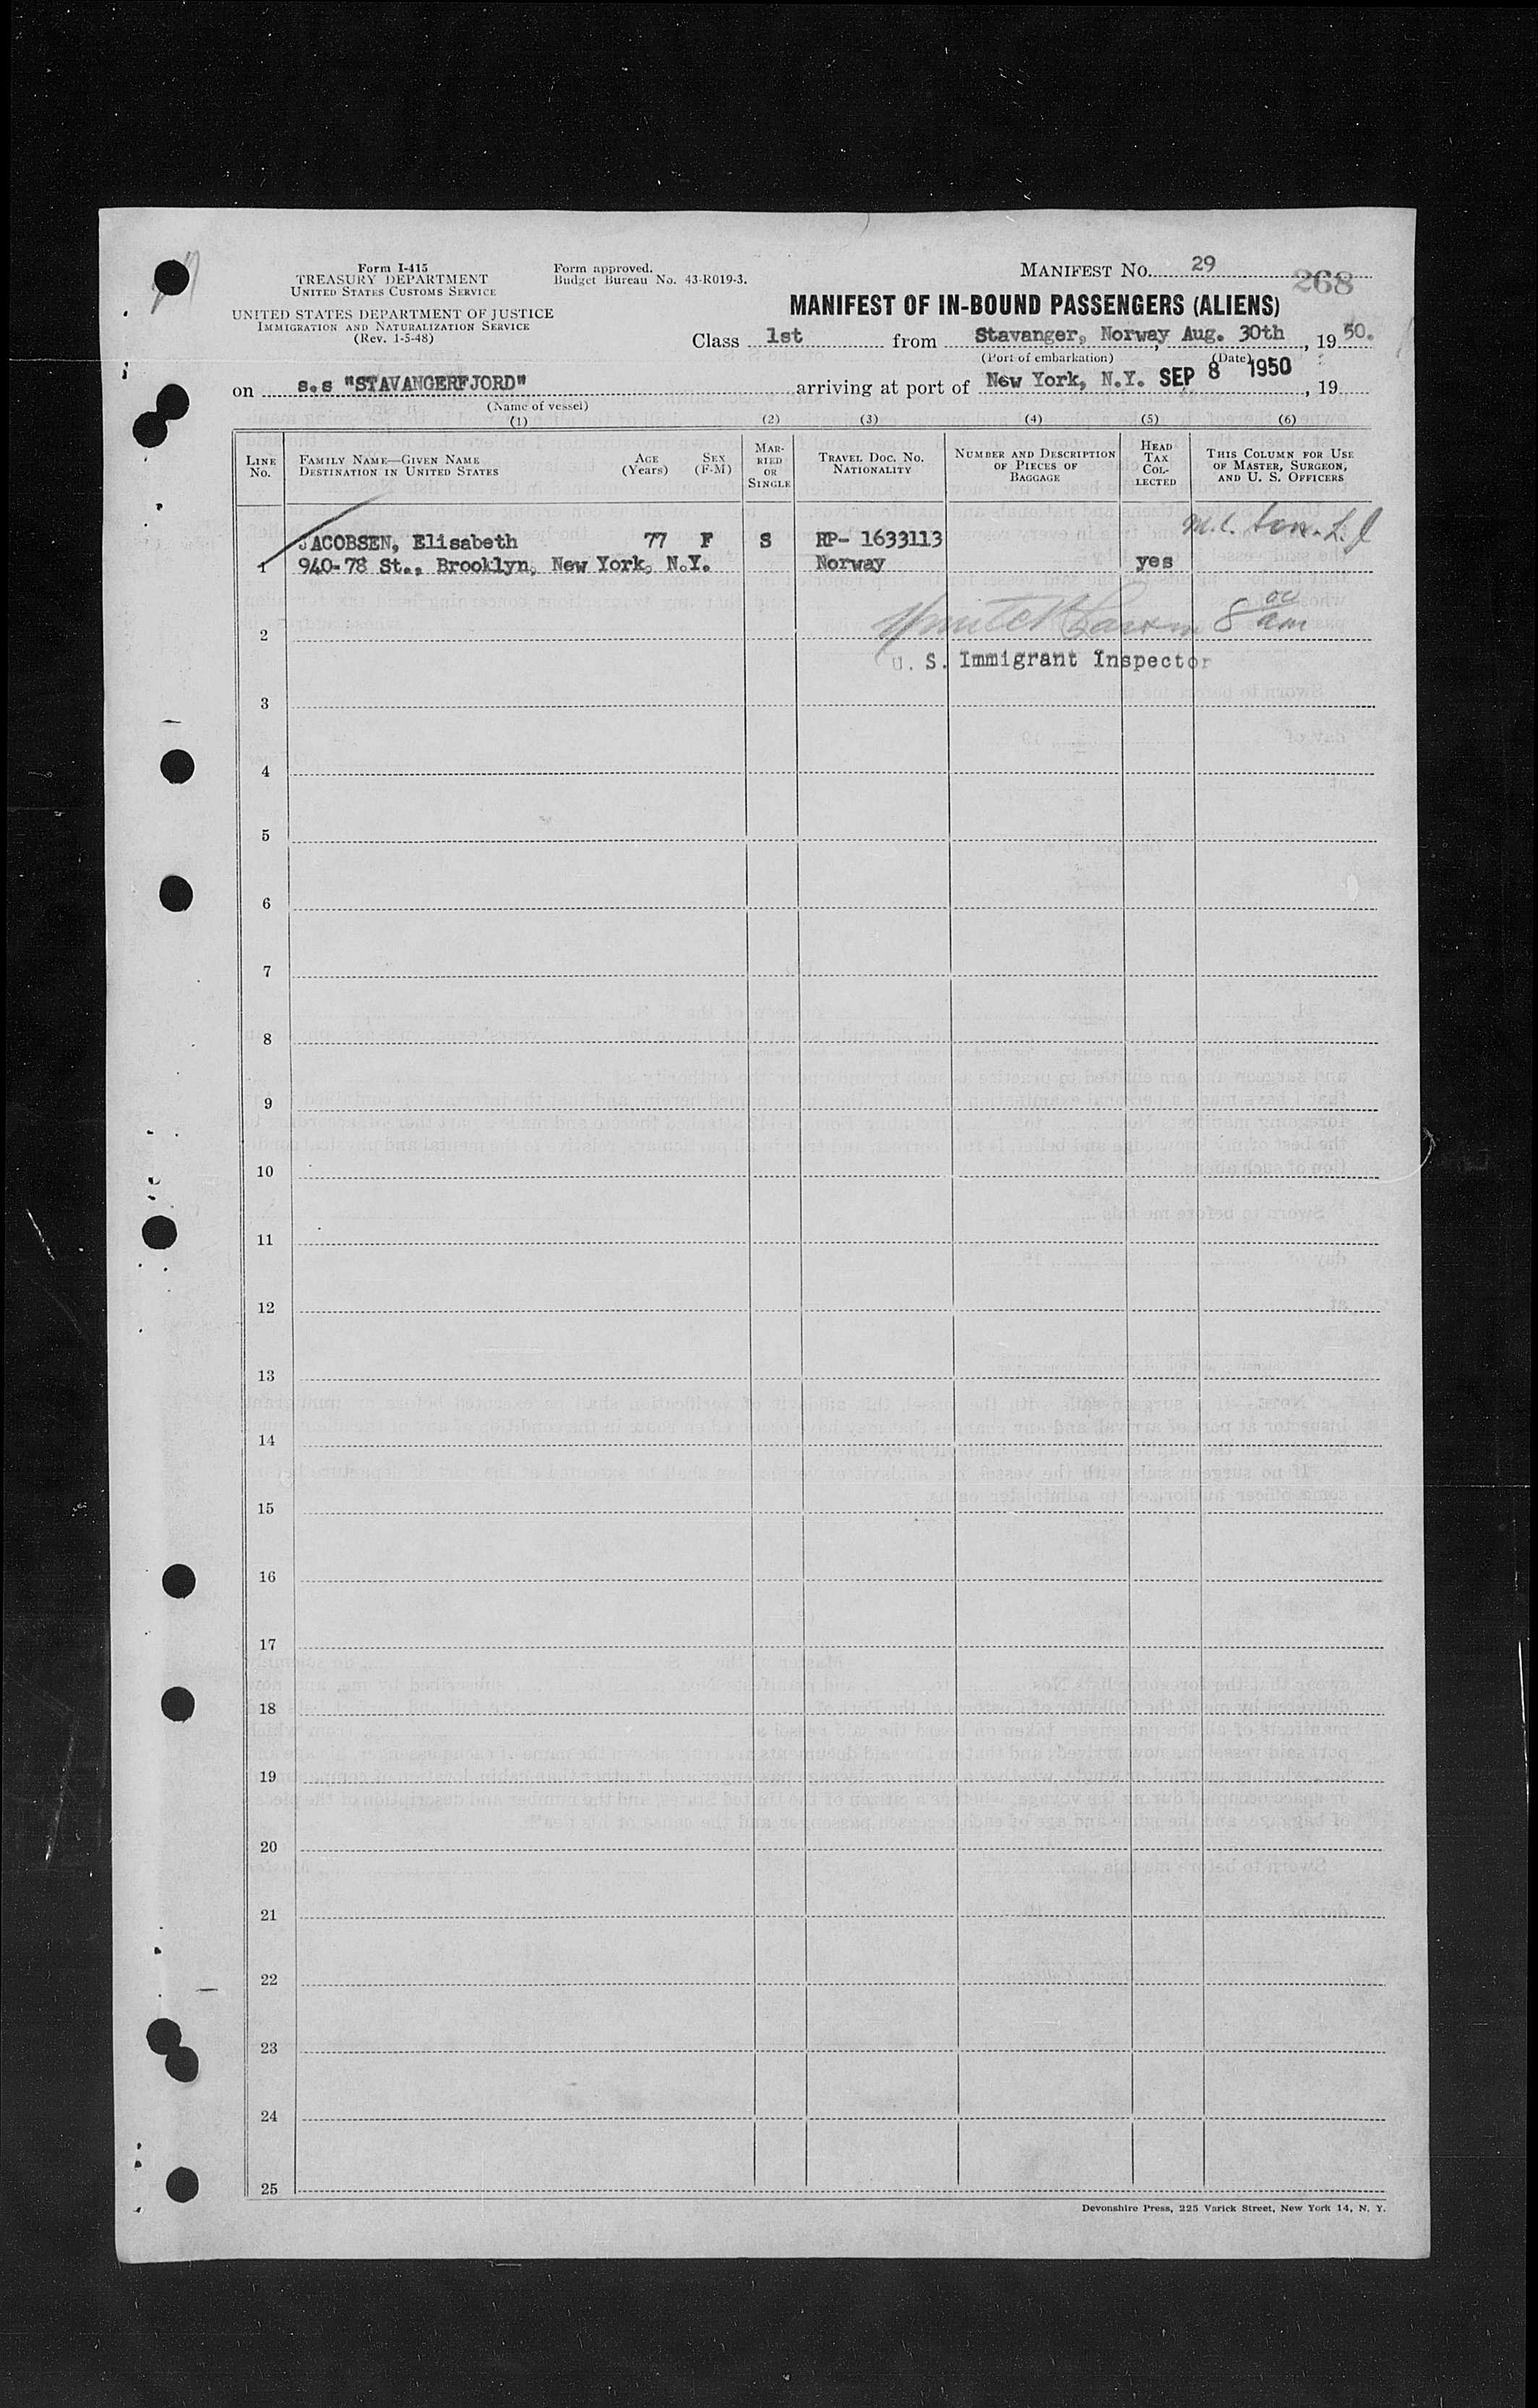 Form I-415
TREASURY DEPARTMENT
UNITED STATES CUSTOMS SERVICE
UNITED STATES DEPARTMENT OF JUSTICE
IMMIGRATION AND NATURALIZATION SERVICE
(Rev. 1-5-48)
Form approved.
Budget Bureau No. 43-R019-3.
MANIFEST NO. 29
268
MANIFEST OF IN-BOUND PASSENGERS (ALIENS)
Class 1st from Stavanger, Norway, Aug. 30th, 19 50.
(Port of embarkation) (Date)
on s.s "STAVANGERFJORD" arriving at port of New York, N.Y. SEP 8 1950, 19
(Name of vessel)
(1) (2) (3) (4) (5) (6)
LINE NO.
FAMILY NAME—GIVEN NAME
DESTINATION IN UNITED STATES
AGE (Years)
SEX (F-M)
MARRIED OR SINGLE
TRAVEL DOC. NO.
NATIONALITY
NUMBER AND DESCRIPTION OF PIECES OF BAGGAGE
HEAD TAX COLLECTED
THIS COLUMN FOR USE OF MASTER, SURGEON, AND U. S. OFFICERS
JACOBSEN, Elisabeth 77 F S RP- 1633113
1 940-78 St., Brooklyn, New York, N.Y. Norway yes
2 8 00 am
U. S. Immigrant Inspector
3
4
5
6
7
8
9
10
11
12
13
14
15
16
17
18
19
20
21
22
23
24
25
Devonshire Press, 225 Varick Street, New York 14, N. Y.